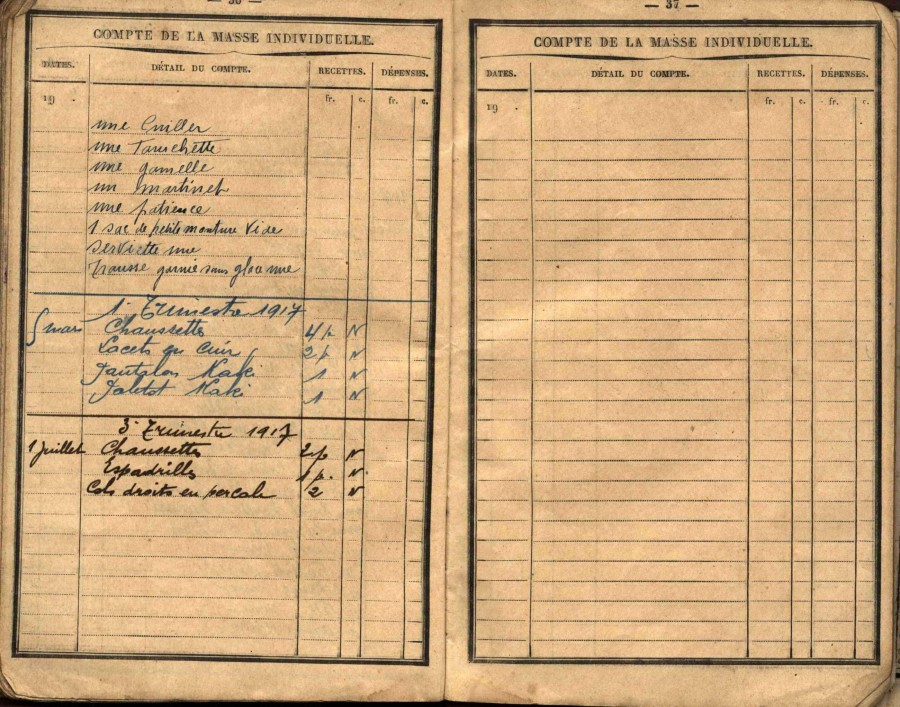 — 36 —
COMPTE DE LA MASSE INDIVIDUELLE.
DATES. DÉTAIL DU COMPTE. RECETTES. DÉPENSES.
fr. c. fr. c.
19
une Cuiller
une Fourchette
une gamelle
un martinet
une patience
1 sac de petite monture vide
Serviette une
Trousse garnie sans glace une
1er Trimestre 1917
5 mars Chaussettes 4 p N
Lacets en Cuir 2 p N
Pantalon Kaki 1 N
Paletot Kaki 1 N
3e Trimestre 1917
1 Juillet Chaussettes 2 p N
Espadrilles 1 p. N
Cols droits en percale 2 N
— 37 —
COMPTE DE LA MASSE INDIVIDUELLE.
DATES. DÉTAIL DU COMPTE. RECETTES. DÉPENSES.
fr. c. fr. c.
19